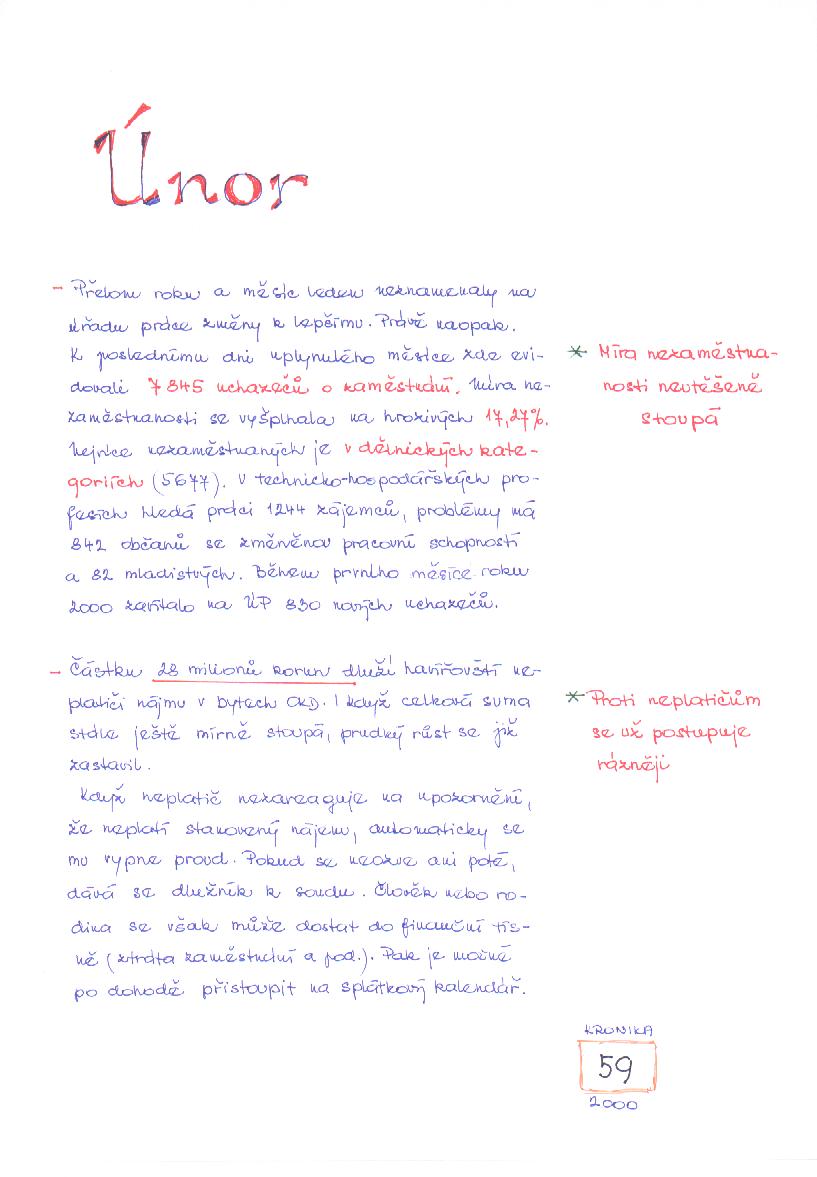 Únor
– Přelom roku a měsíc leden neznamenaly na
úřadu práce změny k lepšímu. Právě naopak.
K poslednímu dni uplynulého měsíce zde evi-
dovali 7 845 uchazečů o zaměstnání. Míra ne-
zaměstnanosti se vyšplhala na hrozivých 17,27%.
Nejvíce nezaměstnaných je v dělnických kate-
goriích (5677). V technicko-hospodářských pro-
fesích hledá práci 1244 zájemců, problémy má
842 občanů se změněnou pracovní schopností
a 82 mladistvých. Během prvního měsíce roku
2000 zavítalo na ÚP 830 nových uchazečů.
* Míra nezaměstna-
nosti neutěšeně
stoupá
– Částku 28 milionů korun dluží havířovští ne-
platiči nájmu v bytech OKD. I když celková suma
stále ještě mírně stoupá, prudký růst se již
zastavil.
Když neplatič nezareaguje na upozornění,
že neplatí stanovený nájem, automaticky se
mu vypne proud. Pokud se neozve ani poté,
dává se dlužník k soudu. Člověk nebo ro-
dina se však může dostat do finanční tís-
ně (ztráta zaměstnání a pod.). Pak je možné
po dohodě přistoupit na splátkový kalendář.
* Proti neplatičům
se už postupuje
rázněji
KRONIKA
59
2000